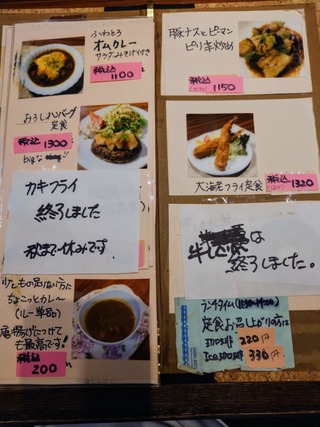 ふわとろ
オムカレー
サラダみそ汁付き
税込
1100
おろしハンバーグ
定食
税込
1300
カキフライ
終了しました
秋まで休みです。
少しもの足りない方に
ちょこっとカレー
(ルー単品)
唐揚げにつけて
も最高です!
税込
200
豚ナスとピーマン
ピリ辛炒め
税込
1150
大海老フライ定食
税込
1320
は
終了しました。
ランチタイム(11:30~14:00)
定食お召し上がりの方に
HOT珈琲 220円
ICE珈琲 330円